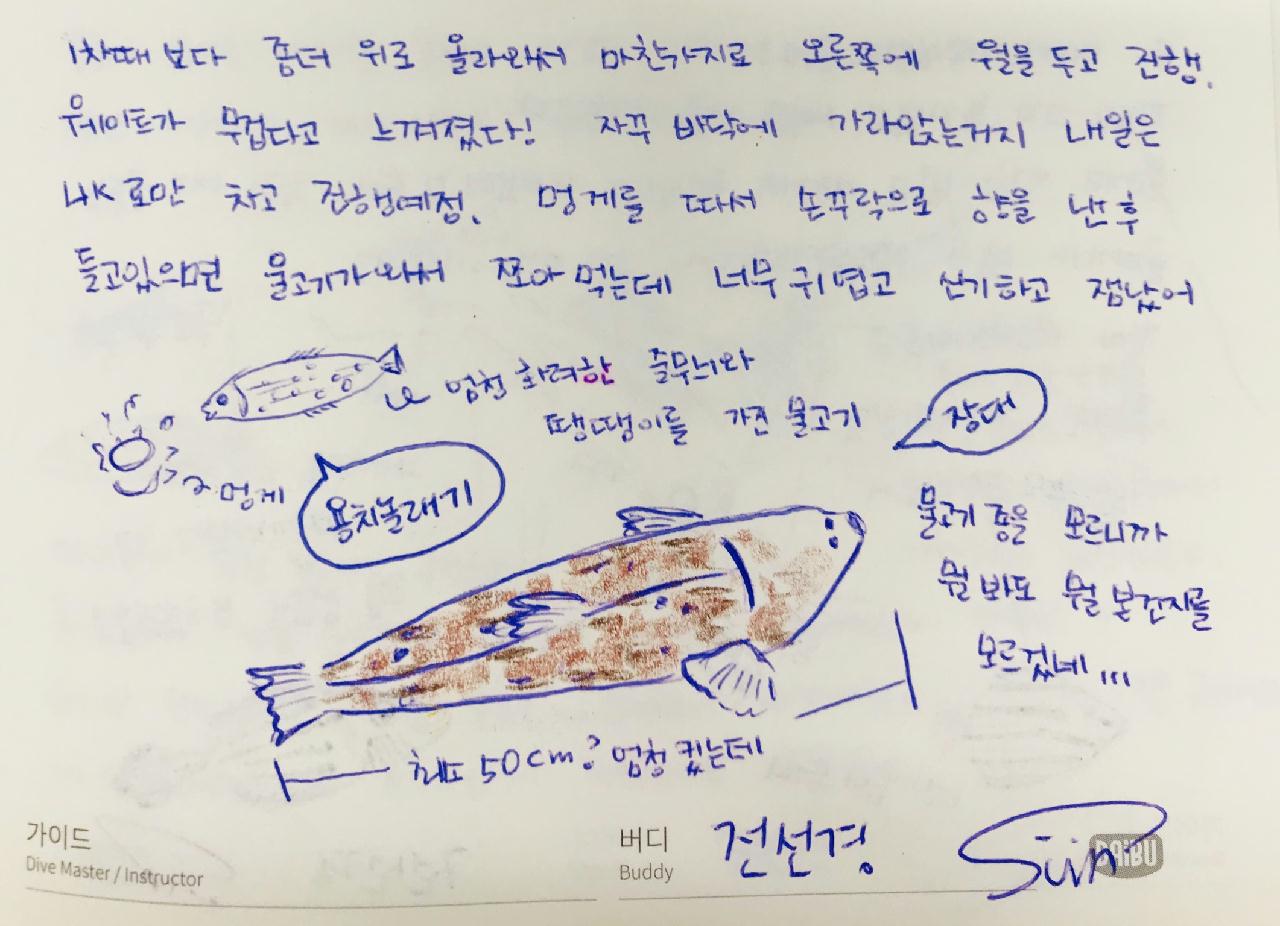 1차때 보다 좀더 위로 올라와서 마찬가지로 오른쪽에 월을 두고 진행.
웨이트가 무겁다고 느껴졌다! 자꾸 바닥에 가라앉는거지 내일은
4K로만 차고 진행예정. 멍게를 따서 손꾸락으로 향을 낸후
들고있으면 물고기가와서 쪼아먹는데 너무 귀엽고 신기하고 잼났어
엄청 화려한 줄무늬와
땡땡이를 가진 물고기
장대
멍게
용치놀래기
물고기 종을 모르니까
뭘 봐도 뭘 본건지를
모르겠네...
최소 50cm? 엄청 컸는데
가이드
Dive Master / Instructor
버디
Buddy
전선경
Sujin
DAIBU